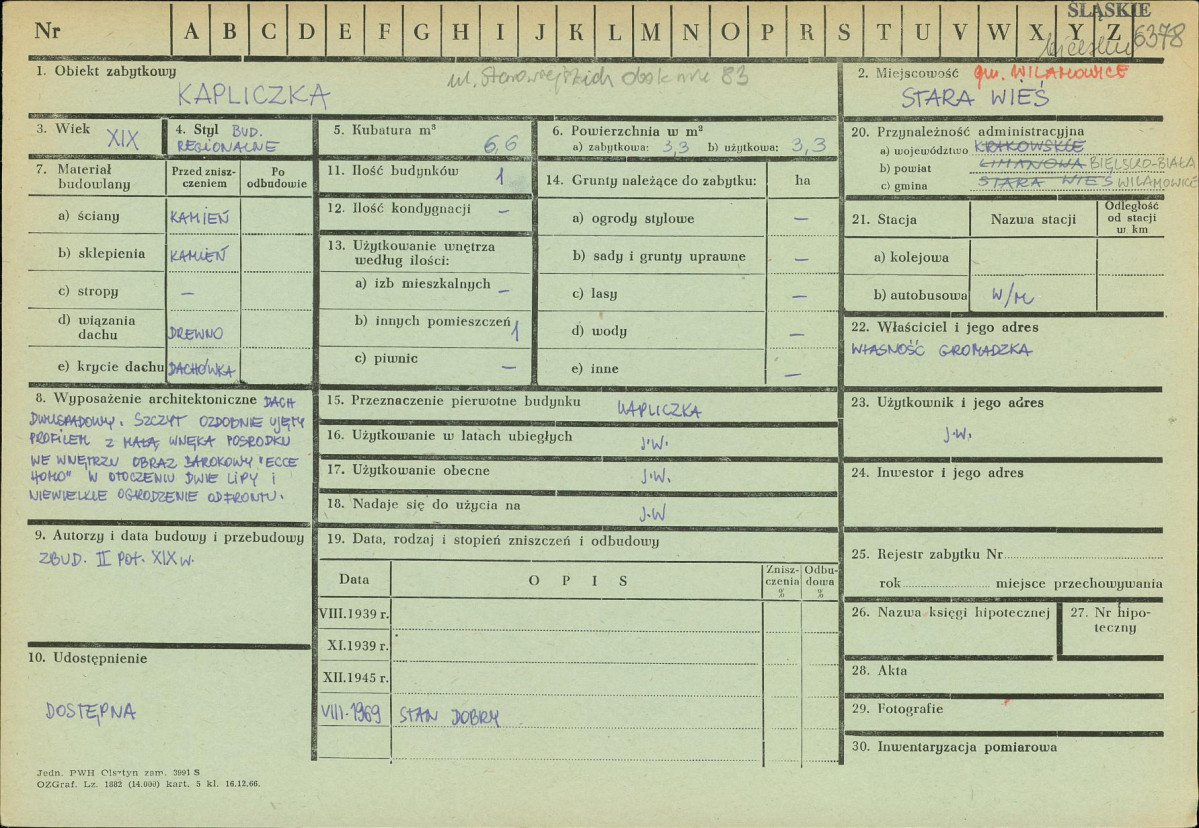 ŚLĄSKIE
Nr A B C D E F G H I J K L M N O P R S T U V W X Y Z 6378
1. Obiekt zabytkowy
KAPLICZKA
ul. Starowiejskich obok nr 83
2. Miejscowość gm. WILAMOWICE
STARA WIEŚ
3. Wiek
XIX
4. Styl BUD.
REGIONALNE
5. Kubatura m³
6,6
6. Powierzchnia w m²
a) zabytkowa: 3,3 b) użytkowa: 3,3
7. Materiał budowlany
Przed znisz-
czeniem
Po
odbudowie
a) ściany KAMIEŃ
b) sklepienia KAMIEŃ
c) stropy –
d) wiązania
dachu DREWNO
e) krycie dachu DACHÓWKA
8. Wyposażenie architektoniczne DACH
DWUSPADOWY. SZCZYT OZDOBNIE UJĘTY
PROFILEM Z MAŁĄ WNĘKĄ POŚRODKU
WE WNĘTRZU OBRAZ BAROKOWY "ECCE
HOMO" W OTOCZENIU DWIE LIPY I
NIEWIELKIE OGRODZENIE OD FRONTU.
9. Autorzy i data budowy i przebudowy
ZBUD. II POŁ. XIX w.
10. Udostępnienie
DOSTĘPNA
11. Ilość budynków 1
12. Ilość kondygnacji –
13. Użytkowanie wnętrza
według ilości:
a) izb mieszkalnych –
b) innych pomieszczeń 1
c) piwnic –
14. Grunty należące do zabytku: ha
a) ogrody stylowe –
b) sady i grunty uprawne –
c) lasy –
d) wody –
e) inne –
15. Przeznaczenie pierwotne budynku KAPLICZKA
16. Użytkowanie w latach ubiegłych J.W.
17. Użytkowanie obecne J.W.
18. Nadaje się do użycia na J.W
19. Data, rodzaj i stopień zniszczeń i odbudowy
Data O P I S Znisz-
czenia
% Odbu-
dowa
%
VIII.1939 r.
XI.1939 r.
XII.1945 r.
VIII.1969 STAN DOBRY
20. Przynależność administracyjna
a) województwo KRAKOWSKIE
b) powiat LIMANOWA BIELSKO-BIAŁA
c) gmina STARA WIEŚ WILAMOWICE
21. Stacja Nazwa stacji Odległość
od stacji
w km
a) kolejowa
b) autobusowa W/M
22. Właściciel i jego adres
WŁASNOŚĆ GROMADZKA
23. Użytkownik i jego adres
J.W.
24. Inwestor i jego adres
25. Rejestr zabytku Nr
rok miejsce przechowywania
26. Nazwa księgi hipotecznej
27. Nr hipo-
teczny
28. Akta
29. Fotografie
30. Inwentaryzacja pomiarowa
Jedn. PWH Olsztyn zam. 3991 S
OZGraf. Lz. 1882 (14.000) kart. 5 kl. 16.12.66.